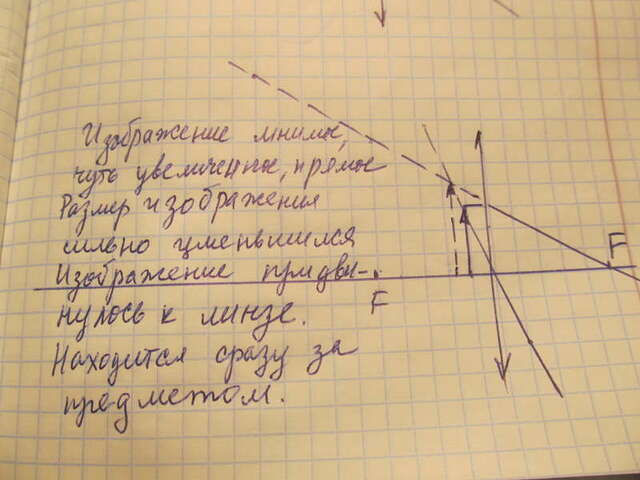 Изображение мнимое,
чуть увеличенное, прямое
Размер изображения
сильно уменьшился
Изображение придви-
нулось к линзе.
Находится сразу за
предметом.
F
F